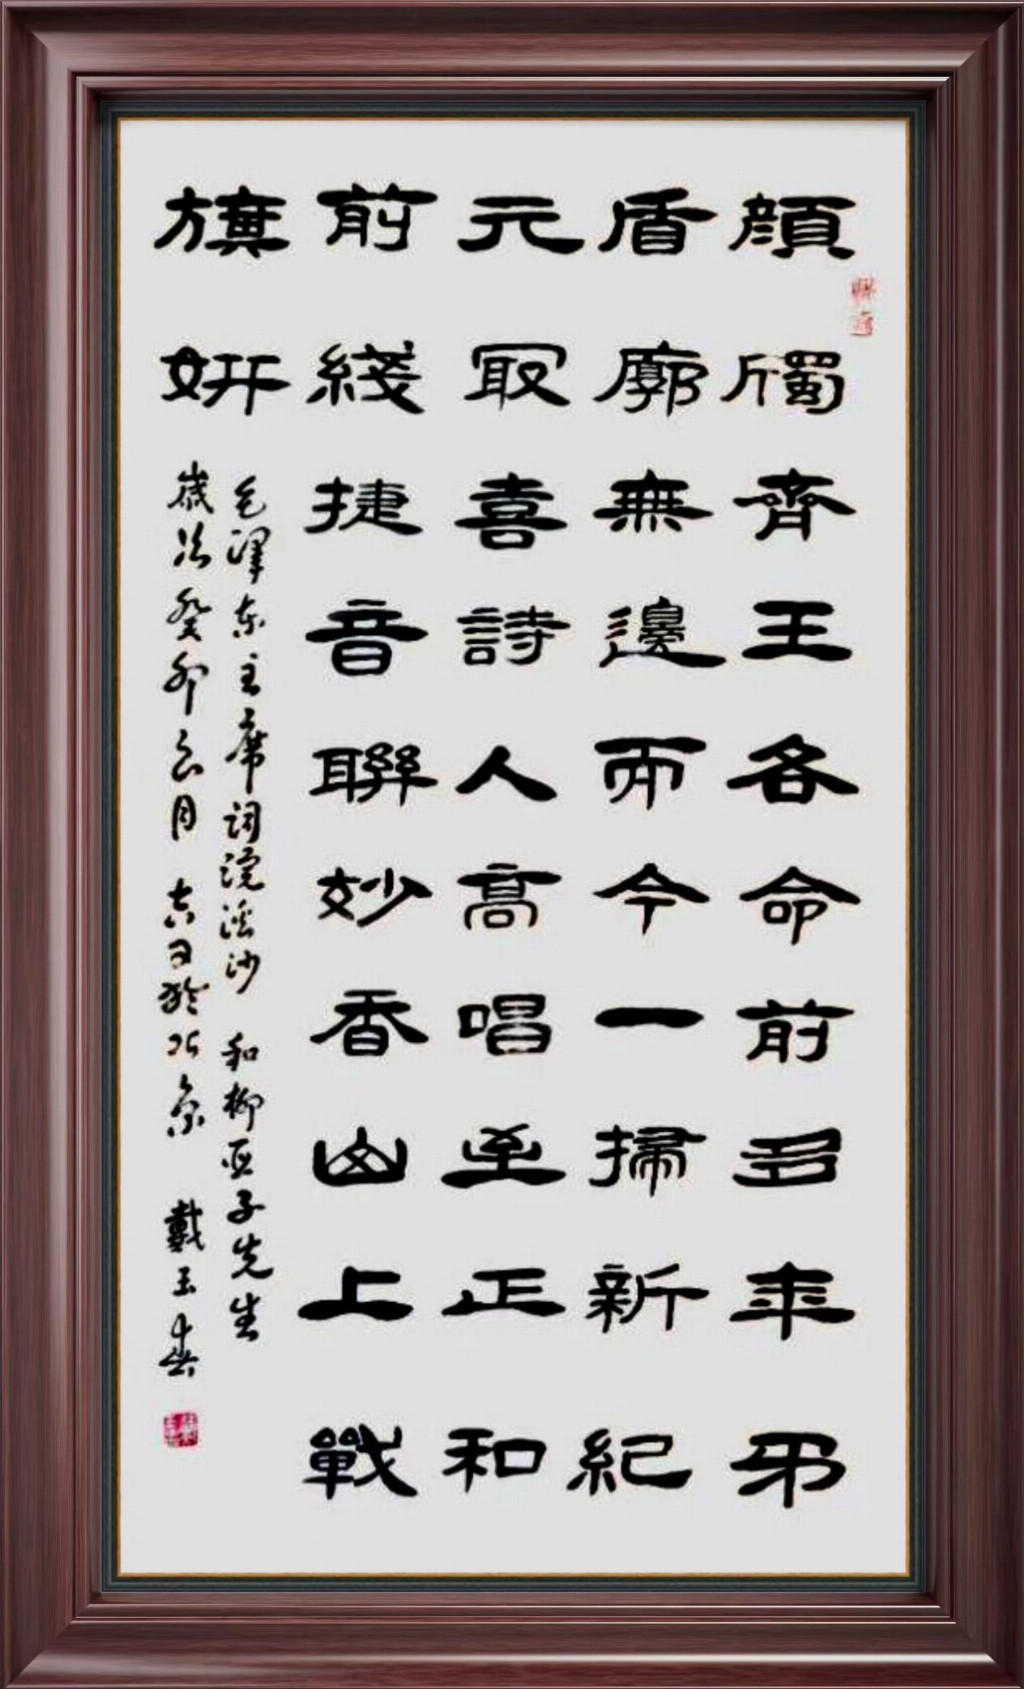 顏斶齊王各命前多年矛
盾廓無邊而今一掃新紀
元冣喜詩人高唱至正和
前綫捷音聯妙香山上戰
旗妍
毛澤东主席词浣溪沙 和柳亚子先生
歲次癸卯六月 吉日於北京 戴玉春